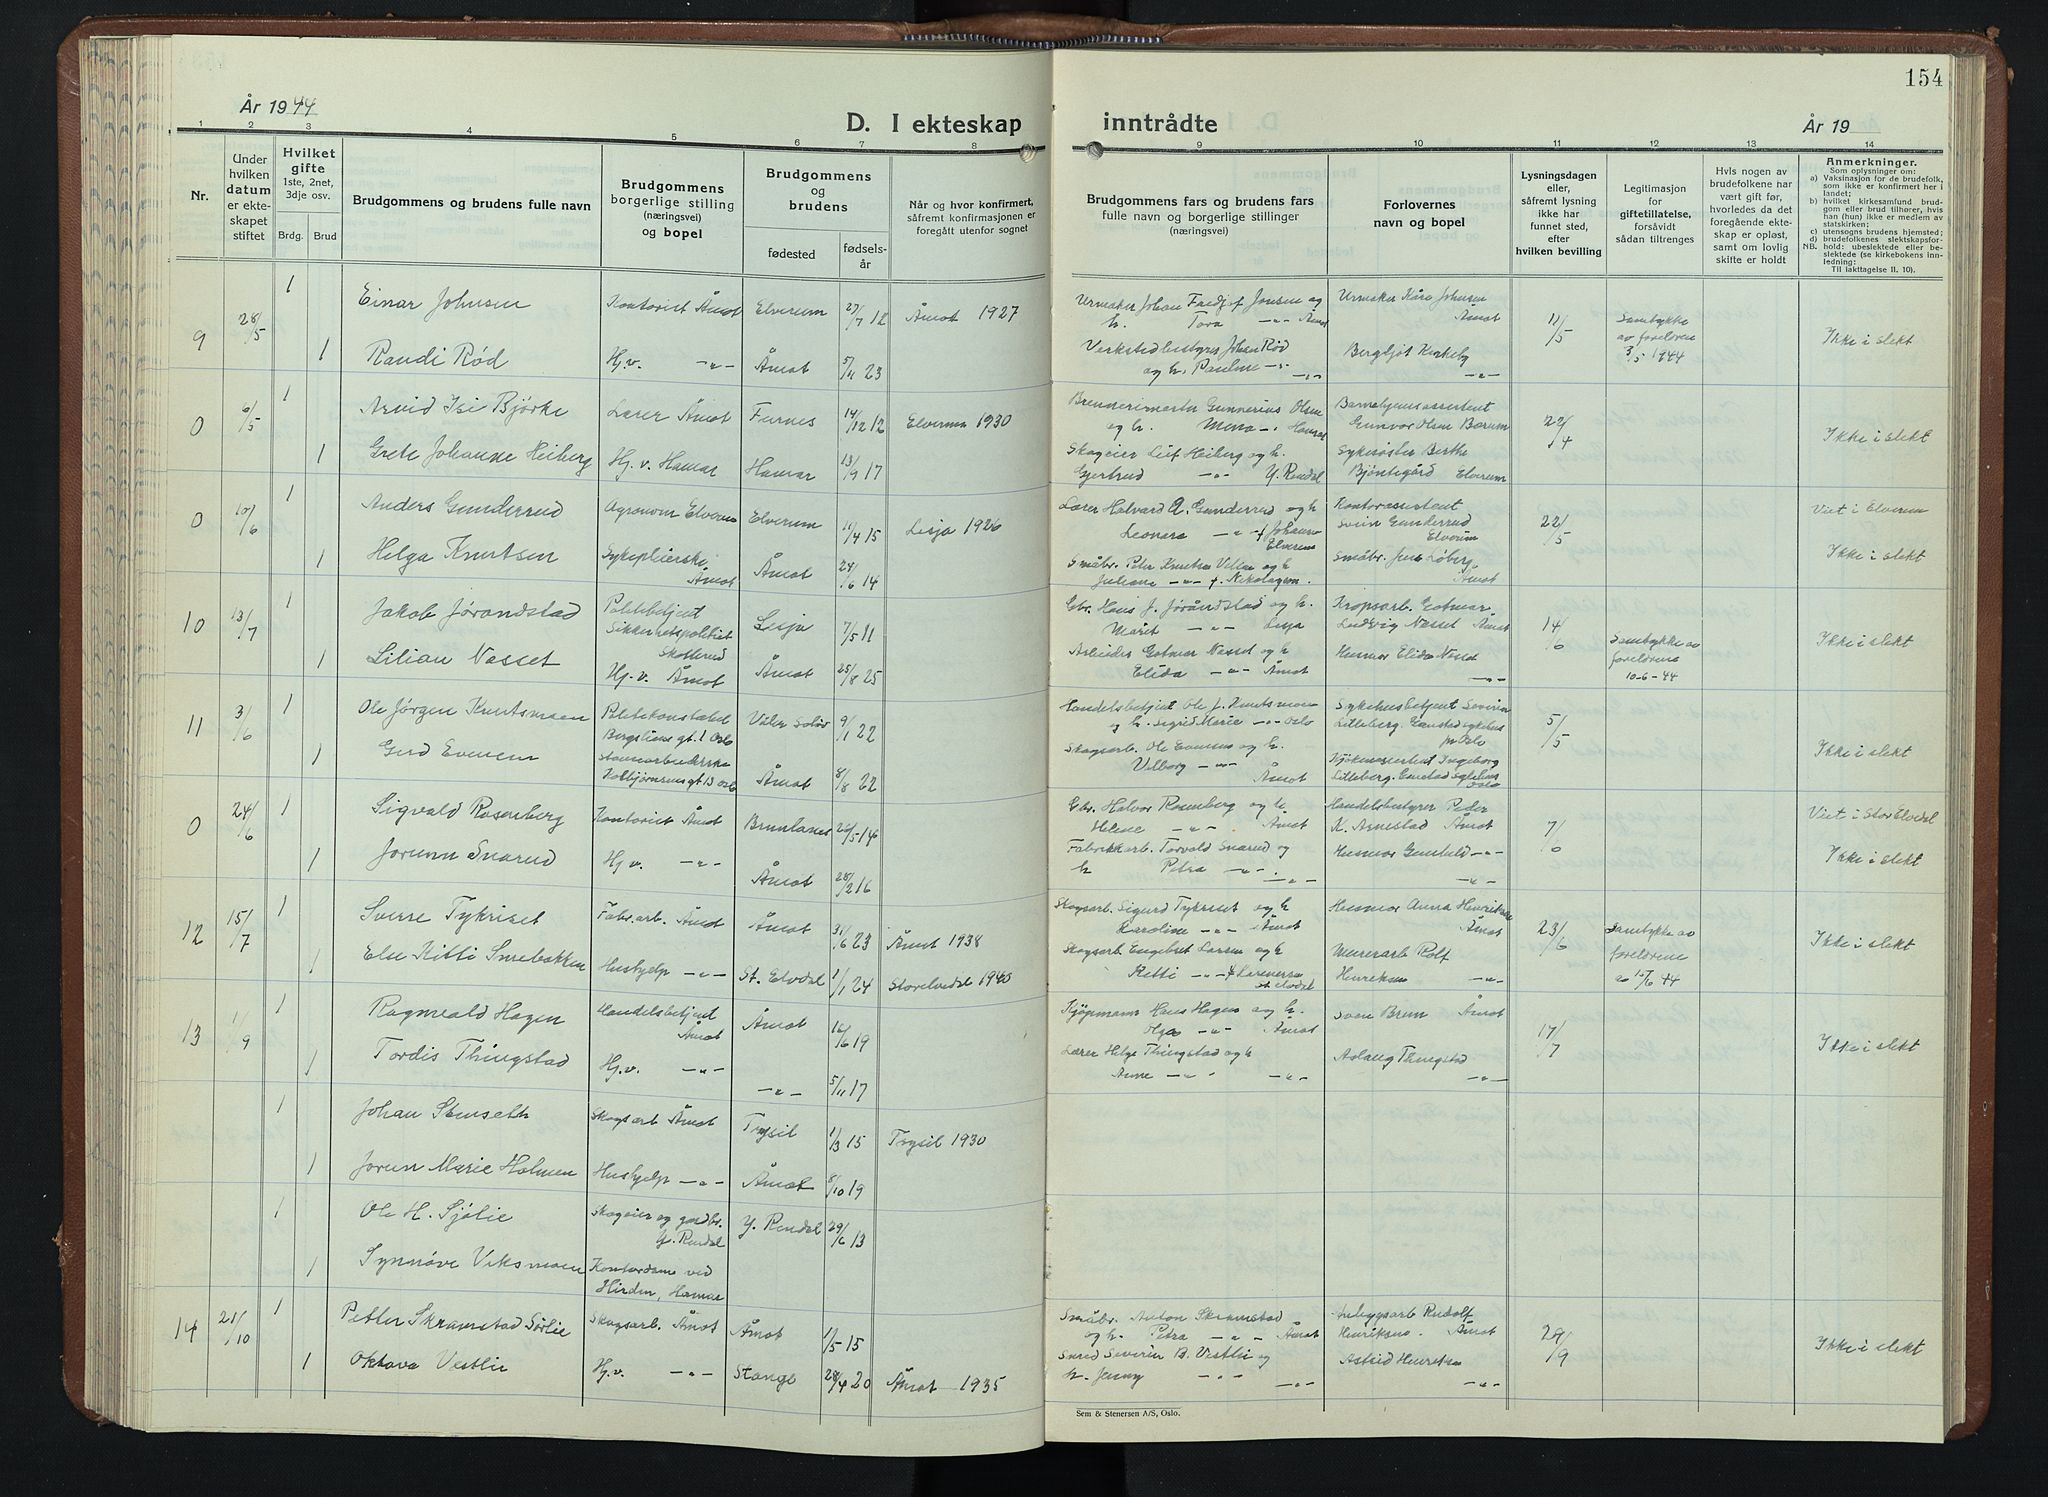 154
År 1944
D. I ekteskap inntrådte
År 19
1 2 3 4 5 6 7 8 9 10 11 12 13 14
Nr.
Under hvilken datum er ekteskapet stiftet
Hvilket gifte
1ste, 2net, 3dje osv.
Brdg. Brud
Brudgommens og brudens fulle navn
Brudgommens borgerlige stilling (næringsvei) og bopel
Brudgommens og brudens
fødested
fødselsår
Når og hvor konfirmert, såfremt konfirmasjonen er foregått utenfor sognet
Brudgommens fars og brudens fars fulle navn og borgerlige stillinger (næringsvei)
Forlovernes navn og bopel
Lysningsdagen eller, såfremt lysning ikke har funnet sted, efter hvilken bevilling
Legitimasjon for giftetillatelse, forsåvidt sådan tiltrenges
Hvis nogen av brudefolkene har vært gift før, hvorledes da det foregående ekteskap er opløst, samt om lovlig skifte er holdt
Anmerkninger.
Som oplysninger om:
a) Vaksinasjon for de brudefolk, som ikke er konfirmert her i landet;
b) hvilket kirkesamfund brudgom eller brud tilhører, hvis han (hun) ikke er medlem av statskirken;
c) utensogns brudens hjemsted;
d) brudefolkenes slektskapsforhold: ubeslektede eller beslektede (se kirkebokens innledning:
NB.
Til iakttagelse II. 10).
9 28/5 1 Einar Johnsen Kontorist Åmot Elverum 27/7 12 Åmot 1927 Urmaker Johan Fredjof Jonsen og h. Tora -"- Åmot Urmaker Kåre Johnsen Åmot 11/5 Samtykke av foreldrene 3/5 1944 Ikke i slekt
1 Randi Rød Hj.v. -"- Åmot 5/11 23 Verkstedbestyrer Johan Rød og h. Pauline -"- Bergljot Kirkeby -"-
0 6/5 1 Arvid Isi Bjørke Lærer Åmot Furnes 14/12 12 Elverum 1930 Brennerimester Gunnerius Olsen og h. Mena -"- Hamar Barnehjemsassistent Gunvor Olsen Bærum 22/4 Ikke i slekt
1 Grete Johanne Heiberg Hj. v. Hamar Hamar 13/9 17 Skogeier Leif Heiberg og h. Gjertrud -"- Y. Rendal Sykesøster Berthe Bjøntegård Elverum
0 10/6 1 Anders Gunderrud Agronom Elverum Elverum 11/4 15 Lesja 1926 Lærer Halvard A. Gunderrud og h Leonara -"- f. Johansen Elverum Kontorassistent Svein Gunderrud Elverum 22/5 Viet i Elverum
1 Helga Knutsen Sykepleierske Åmot Åmot 24/6 14 Småbr. Peter Knutsen Villa og h Juliane -"- f. Nikolaysen. Småbr. Jens Løberg. Åmot Ikke i slekt
10 13/7 1 Jakob Jørandstad Politibetjent Sikkerhetspolitiet Skotterud Lesja 7/5 11 Gbr. Hans J. Jørandstad og h. Marit -"- Lesja Kropsarb. Gotmar Ludvig Nesset Åmot 14/6 Samtykke av foreldrene 10-6-44 Ikke i slekt
1 Lilian Nesset Hj. v. Åmot Åmot 25/8 25 Arbeider Gotmar Nesset og h Elida -"- Åmot Husmor Elida Nesset -"-
11 3/6 1 Ole Jørgen Knutsmoen Politikonstabel Bergsliens gt. 1 Oslo Våler Solør 9/1 22 Handelsbetjent Ole J. Knutsmoen og h. Sigrid Marie -"- Oslo Sykehusbetjent Severin Lilleberg. Gaustad sykehus pr Oslo 5/5 Ikke i slekt
1 Gerd Evensen Kolbjørnsens gt. 13 Oslo Åmot 8/8 22 Skogsarb. Ole Evensen og h. Vilborg -"- Åmot Kjøkkenassistent Ingeborg Lilleberg. Gaustad Sykehus Oslo
0 24/6 1 Sigvald Rosenberg Kontorist Åmot Brunlanes 26/5-14 Gbr. Halvor Rosenberg og h Helene -"- Åmot Handelsbestyrer Peder K. Arnestad Åmot 7/6 Viet i Stor Elvdal
1 Jorunn Snarud Hj v. -"- Åmot 28/2 16 Fabrikkarb. Torvald Snarud og h Petra -"- Husmor -"- Ikke i slekt
12 15/7 1 Sverre Tykriset Fabr.arb. Åmot Åmot 31/6 23 Åmot 1938 Skogsarb. Sigurd Tykriset og h Karoline -"- Åmot Husmor Anna Henriksen Åmot 23/6 Samtykke av foreldrene av 10/6 44 Ikke i slekt
1 Else Kitti Smebakken Hushjelp -"- St. Elvdal 1/1 24 Storelvdal 1940 Skogsarb Engebret Larsen og h Kitti -"- St. Elvdal Murerarb Rolf Henriksen -"-
13 1/9 1 Ragnvald Hagen Handelsbetjent Åmot Åmot 12/6 19 Kjøpmann Hans Hagen og h. Olga -"- Åmot Svein Brun Åmot 17/7 Ikke i slekt
1 Tordis Thingstad Hj.v. -"- -"- 5/11 17 Lærer Helge Thingstad og h Anne -"- Aslaug Thingstad -"-
1 Johan Stenseth Skogsarb Åmot Trysil 1/3 15 Trysil 1930
1 Jorun Marie Holmen Hushjelp -"- Åmot 8/10 19
1 Ole H. Sjølie Skogeier og gardbr. Y. Rendal Y. Rendal 29/6 13
1 Synnøve Viksmoen Kontordame ved Hirden, Hamar
14 21/10 1 Petter Skramstad Sørlie Skogsarb. Åmot Åmot 1/5-15 Småbr. Anton Skramstad og h. Petra -"- Åmot Anleggsarb Rudolf Henriksen. Åmot 29/9 Ikke i slekt
1 Oktava Vestlie Hj.v. -"- Stange 28/4 20 Åmot 1935 Smed Severin B. Vestli og h. Jenny -"- Astrid Henriksen -"-
Sem & Stenersen A/S, Oslo.